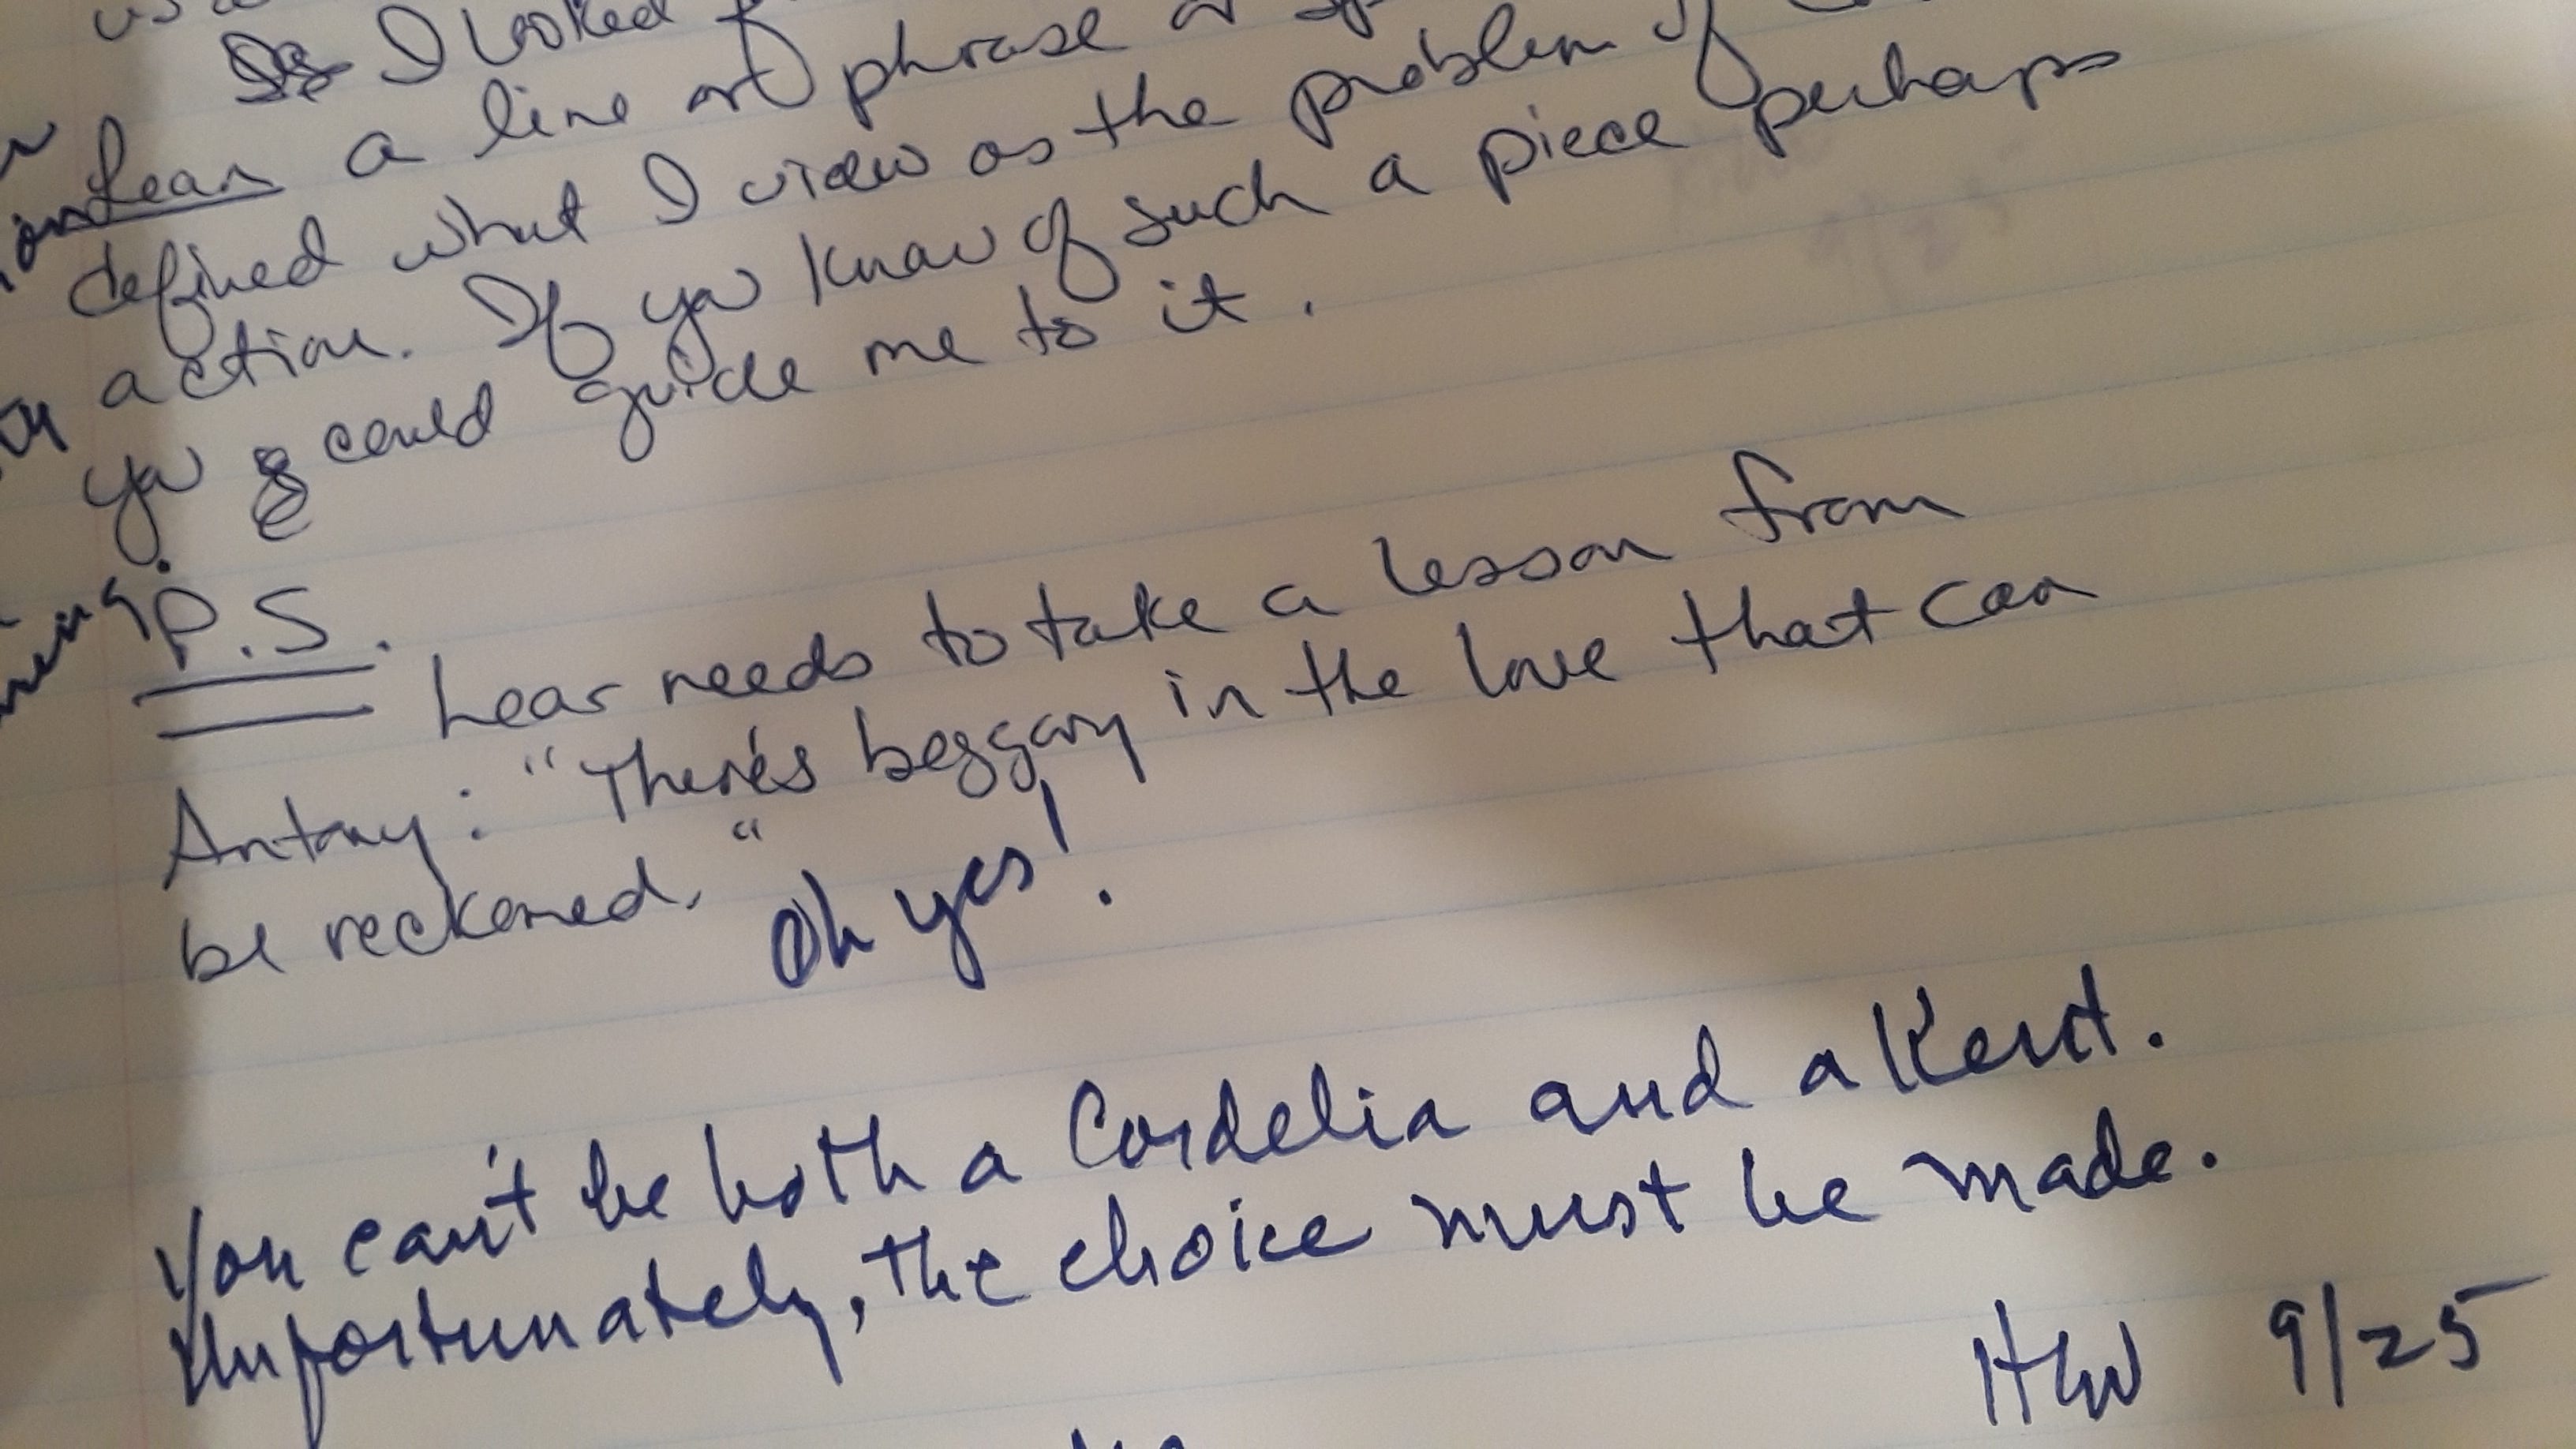 I looked
Lear a line or phrase or
defined what I view as the problem of
action. If you know of such a piece perhaps
you could guide me to it.
P.S.
Lear needs to take a lesson from
Antony: "There's beggary in the love that can
be reckoned." Oh yes!
You can't be both a Cordelia and a Kent.
Unfortunately, the choice must be made.
HW 9/25